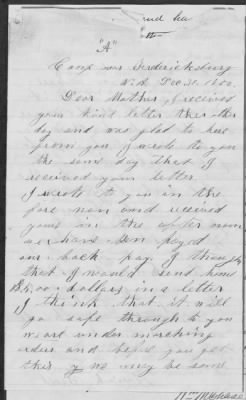 "A"
Camp near Fredericksburg
Va Dec 30. 1862.
Dear Mother, I received
your kind letter the other
day and was glad to hear
from you I wrote to you
the same day that I
received your letter
I wrote to you in the
fore noon and received
yours in the after noon
we have ben payed
our back pay I thought
that I would send home
$5.00 dollars in a letter
I think that it will
go safe through to you
we are under marching
orders and before you get
this we may be some